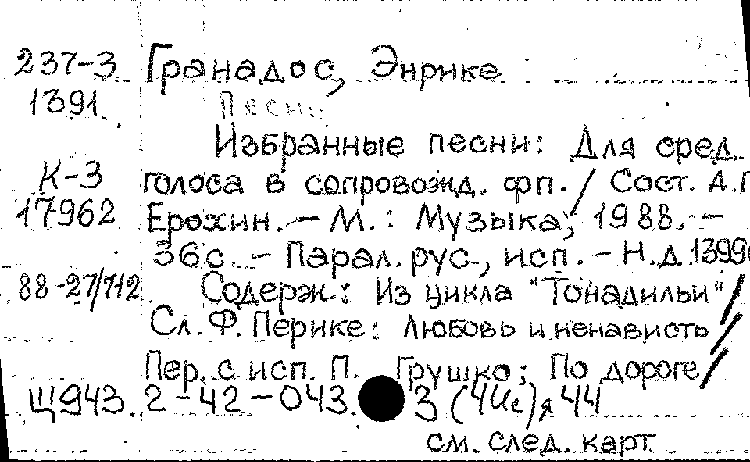 237-3 Гранадос, Энрике
1391 Песни
Избранные песни: Для сред.
К-3 голоса в сопровожд. фп. / Сост. А.П
17962 Ерохин. – М.: Музыка, 1988. –
36с. – Парал. рус., исп. – Н.д. 1399
88-27/712 Содерж.: Из цикла "Тонадильи" /
Сл. Ф. Перике: Любовь и ненависть /
Пер. с исп. П. Грушко; По дороге /
Щ943. 2-42-043. 3(4Ис)я44
см. след. карт.